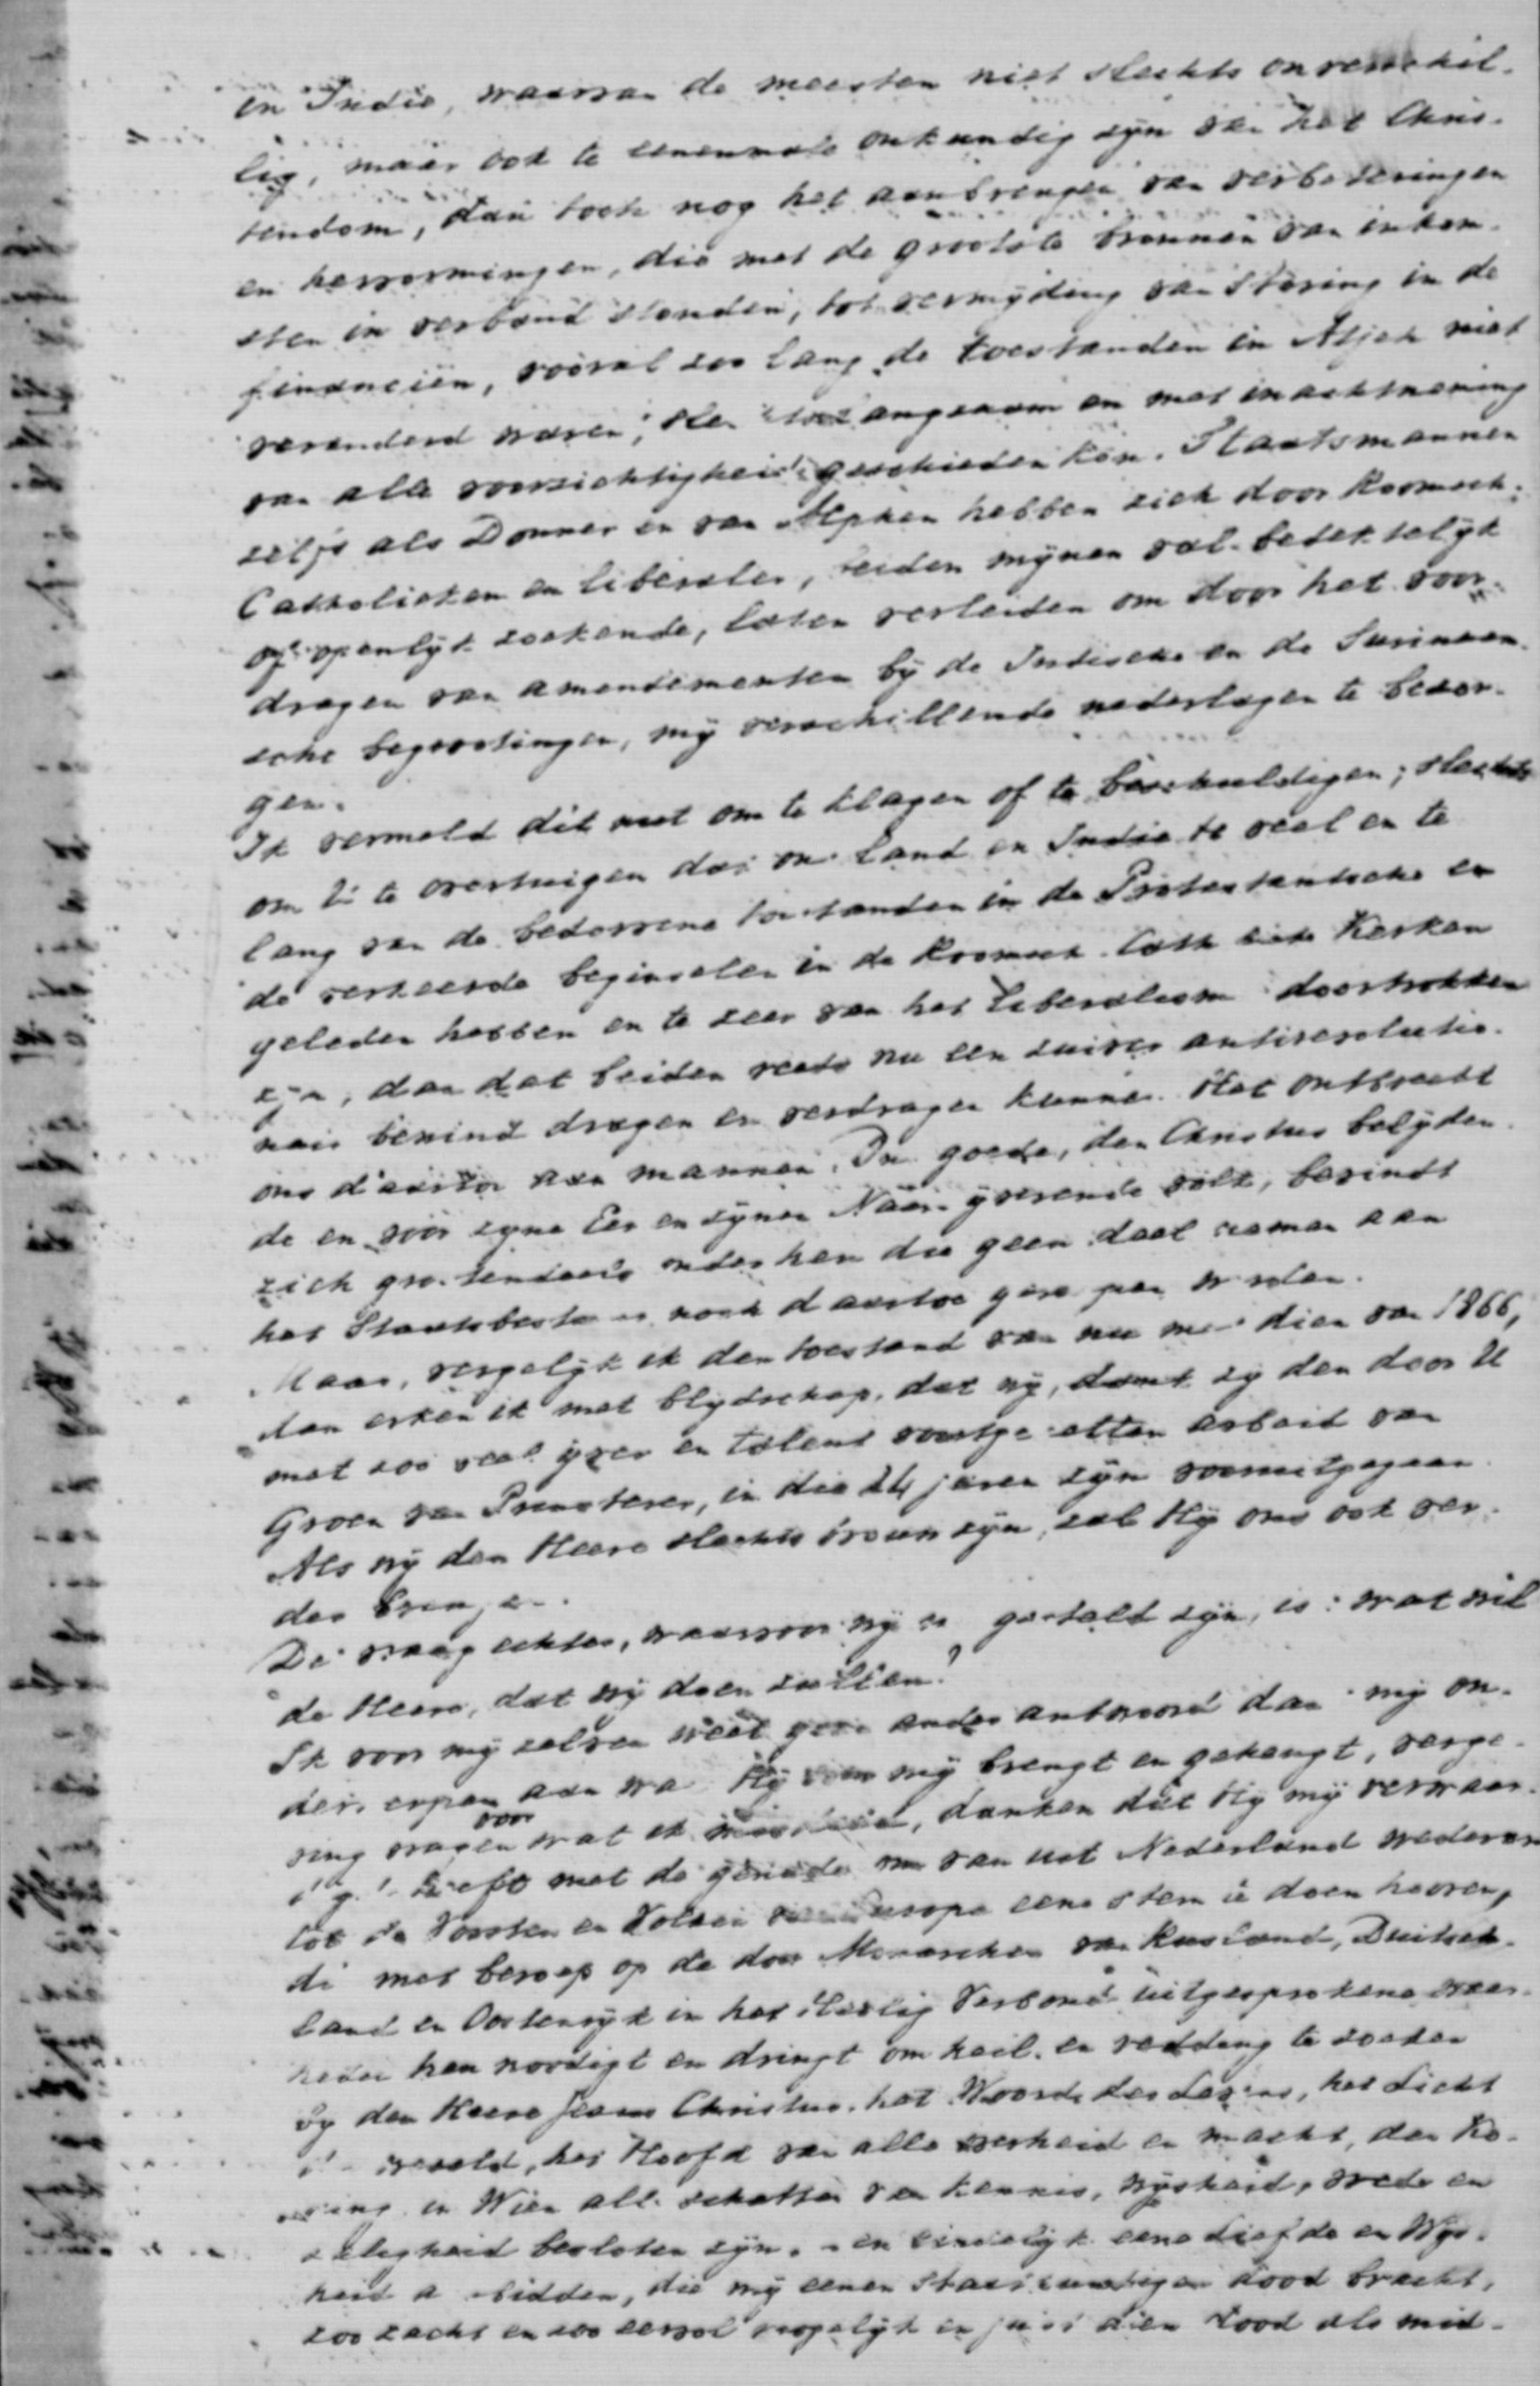 en Indië, waarvan de meesten niet slechts onverschil-
lig, maar ook te eenenmale onkundig zijn van het Chris-
tendom, dan toch nog het aanbrengen van verbeteringen
en hervormingen, die met de grootste bronnen van inkom-
sten in verband stonden, tot vermijding van storing in de
financiën, vooral zoo lang de toestanden in Atjeh niet
veranderd waren, slechts langzaam en met inachtneming
van alle voorzichtigheid geschieden kon. Staatsmannen
zelfs als Donner en van Alphen hebben zich door Roomsch-
Catholieken en liberalen, beiden mijnen val bedektelijk
of openlijk zoekende, laten verleiden om door het voor-
dragen van amendementen bij de Indische en de Surinaam-
sche begrootingen, mij verschillende nederlagen te bezor-
gen.
Ik vermeld dit niet om te klagen of te beschuldigen; slechts
om U te overtuigen dat ons land en Indië te veel en te
lang van de bedorvene toestanden in de Protestantsche en
de verkeerde beginselen in de Roomsch Cath Kerken
geleden hebben en te zeer van het Liberalisme doortrokken
zijn, dan dat beiden reeds nu een zuiver antirevolutio-
nair bewind dragen en verdragen kunnen. Het ontbreekt
ons daartoe aan mannen. Die goede, den Christus belijden-
de en voor zijne Eer en zijnen Naam ijverende volk, bevindt
zich grootendeels onder hen die geen deel namen aan
het Staatsbestuur noch daartoe geroepen worden.
Maar, vergelijk ik den toestand van nu met dien van 1866,
dan erken ik met blijdschap, dat wij, dank zij den door U
met zoo veel ijver en talent voortgezetten arbeid van
Groen van Prinsterer, in die 24 jaren zijn vooruitgegaan.
Als wij den Heere slechts trouw zijn, zal Hij ons ook ver-
der brengen.
De vraag echter, waarvoor wij gesteld zijn, is: wat wil
de Heere, dat wij doen zullen?
Ik voor mij zelven weet geen ander antwoord dan mij on-
derwerpen aan wat Hij over mij brengt en gehengt, verge-
ving vragen voor wat ik misdeed, danken dat Hij mij verwaar-
digd heeft met de genade om van uit Nederland wederom
tot de Vorsten en Volken van Europa eene stem te doen hooren,
die met beroep op de door Monarchen van Rusland, Duitsch-
land en Oostenrijk in het Heilig Verbond uitgesprokene waar-
heden hen noodigt en dringt om heil en redding te zoeken
bij den Heere Jezus Christus, het Woord des Levens, het Licht
der wereld, het Hoofd van alle overheid en macht, den Ko-
ning in Wien alle schatten van kennis, wijsheid, vrede en
zaligheid besloten zijn, en eindelijk eene Liefde en Wijs-
heid aanbidden, die mij eenen staatkundigen dood bracht,
zoo zacht en zoo eervol mogelijk en juist dien dood als mid-